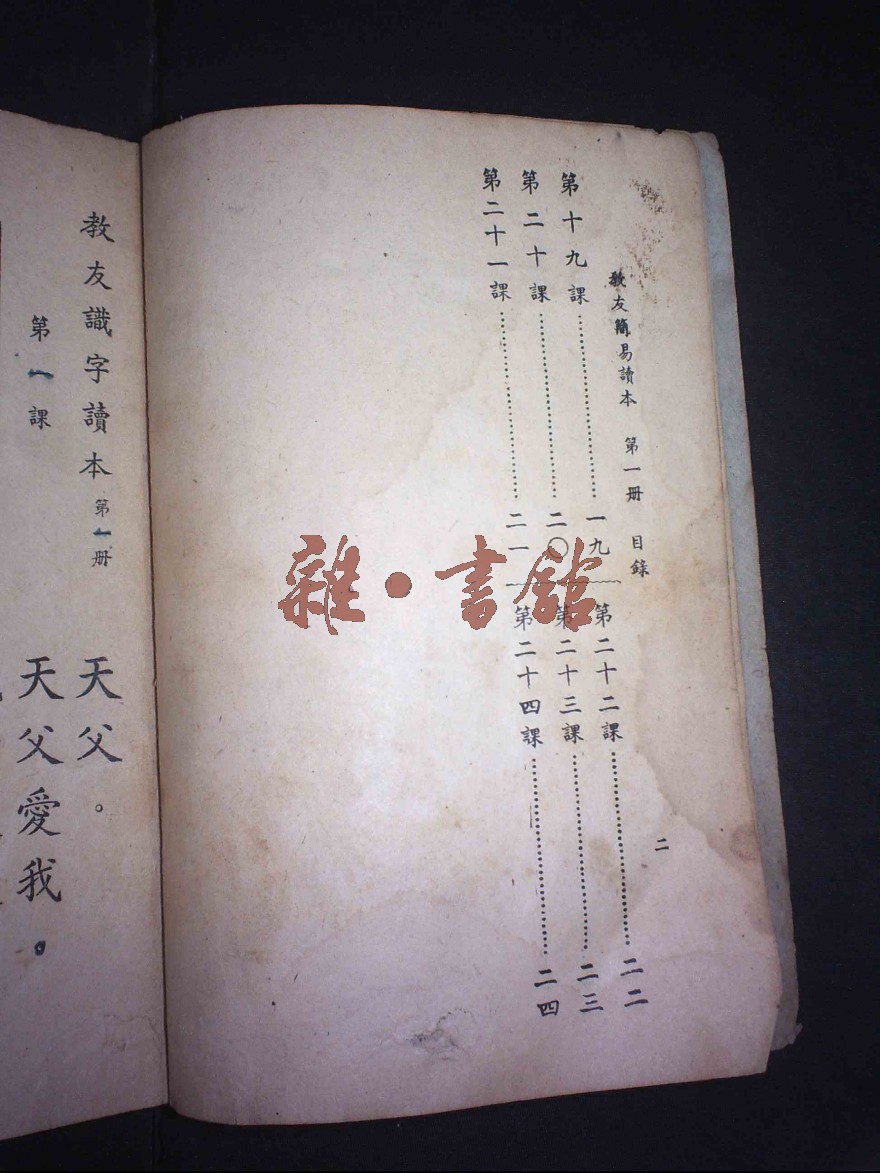 教友簡易讀本 第一册 目錄 二
第十九課……一九
第二十課……二〇
第二十一課……二一
第二十二課……二二
第二十三課……二三
第二十四課……二四
雜·書館
教友識字讀本 第一册
天父。
第一課
天父愛我。